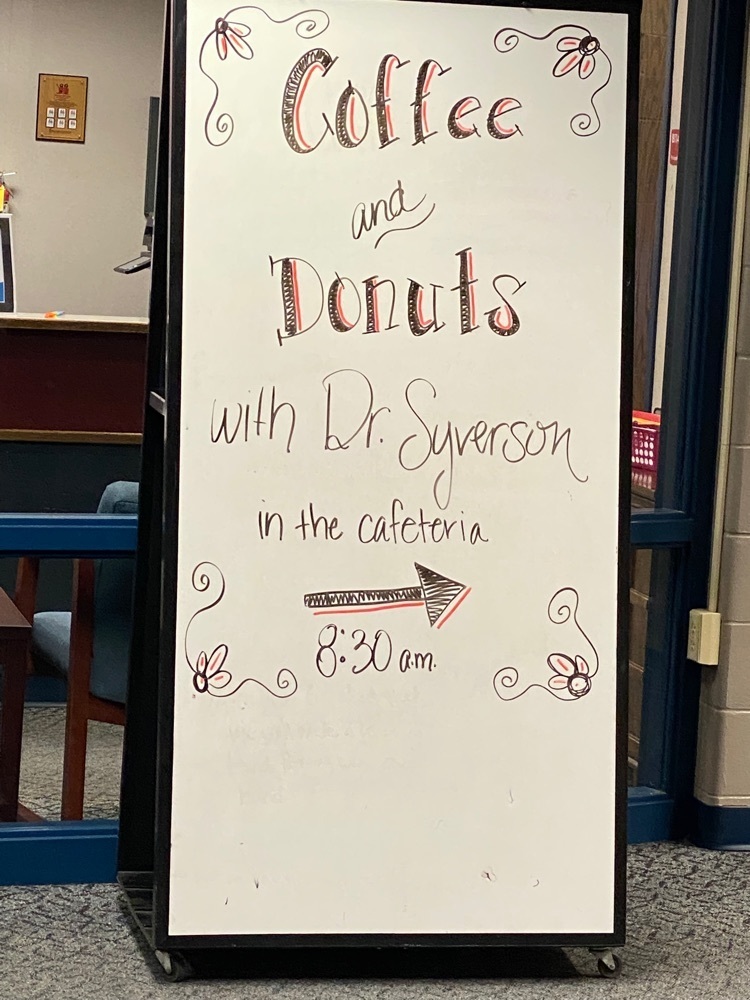 Coffee
and
Donuts
with Dr. Syverson
in the cafeteria
8:30 a.m.